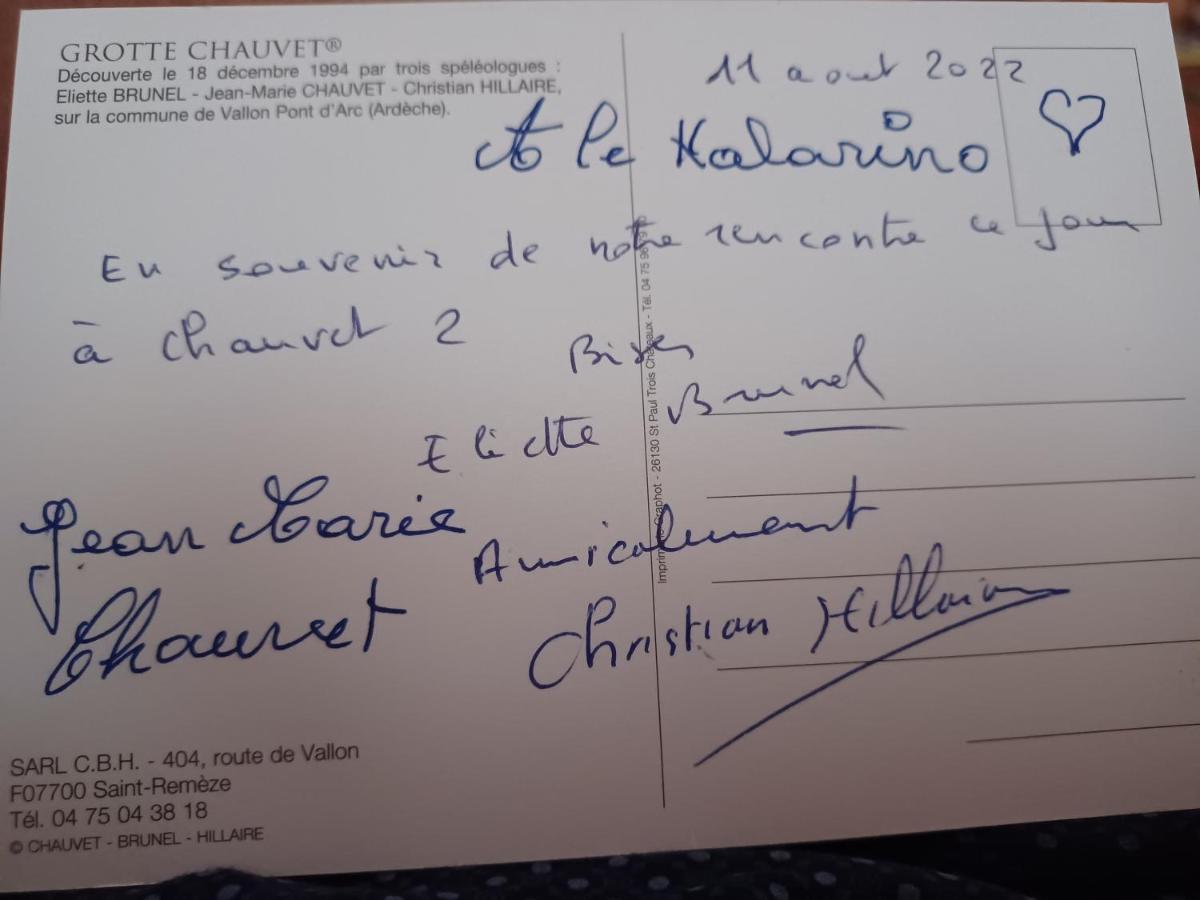 GROTTE CHAUVET®
Découverte le 18 décembre 1994 par trois spéléologues :
Eliette BRUNEL - Jean-Marie CHAUVET - Christian HILLAIRE,
sur la commune de Vallon Pont d'Arc (Ardèche).
11 aout 2022
A le Kalarino
En souvenir de notre rencontre ce jour
à Chauvet 2
Bises
Eliette Brunel
Jean Marie
Chauvet
Amicalement
Christian Hillaire
Imprimerie Graphot - 26130 St Paul Trois Châteaux - Tél. 04 75 96
SARL C.B.H. - 404, route de Vallon
F07700 Saint-Remèze
Tél. 04 75 04 38 18
© CHAUVET - BRUNEL - HILLAIRE